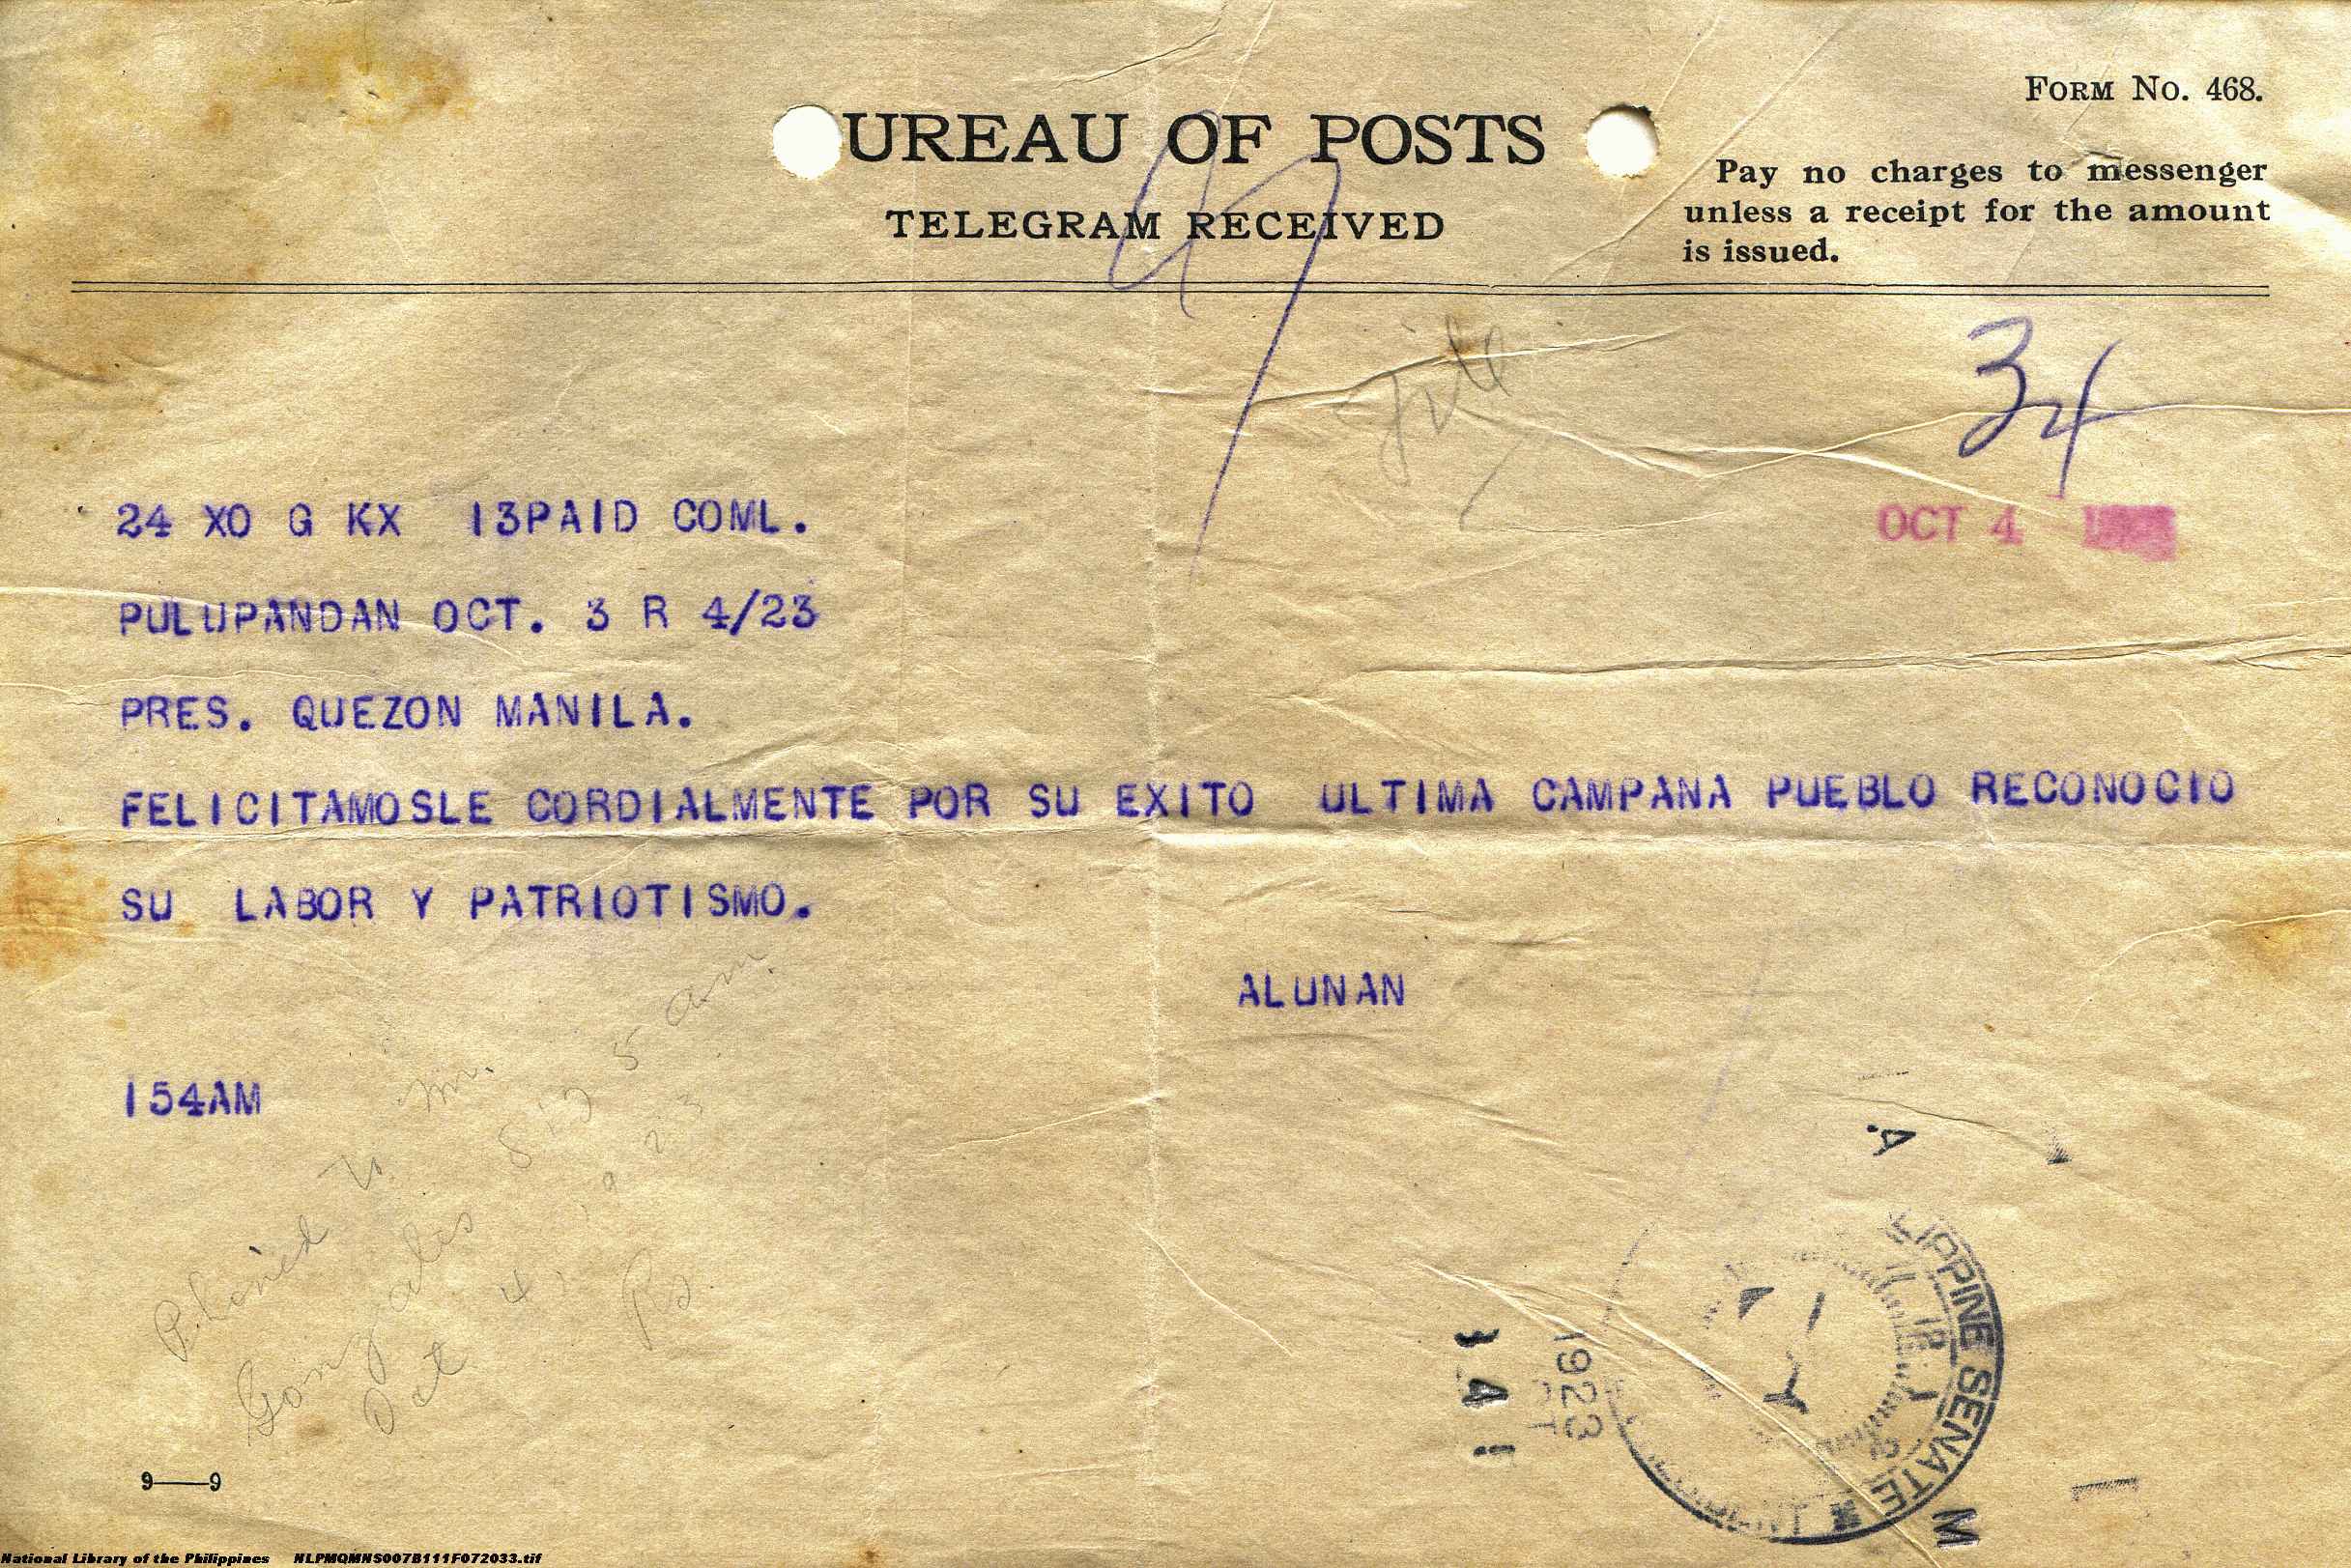 FORM No. 468.
UREAU OF POSTS
TELEGRAM RECEIVED
Pay no charges to messenger
unless a receipt for the amount
is issued.
File
34
24 XO G KX 13PAID COML.
OCT 4
PULUPANDAN OCT. 3 R 4/23
PRES. QUEZON MANILA.
FELICITAMOSLE CORDIALMENTE POR SU EXITO ULTIMA CAMPANA PUEBLO RECONOCIO
SU LABOR Y PATRIOTISMO.
ALUNAN
154AM
Phoned to Mr.
Gonzales 8:15 am.
Oct 4, 1923
A.
M
1923
PHILIPPINE SENATE
9——9
National Library of the Philippines NLPMQMNS007B111F072033.tif